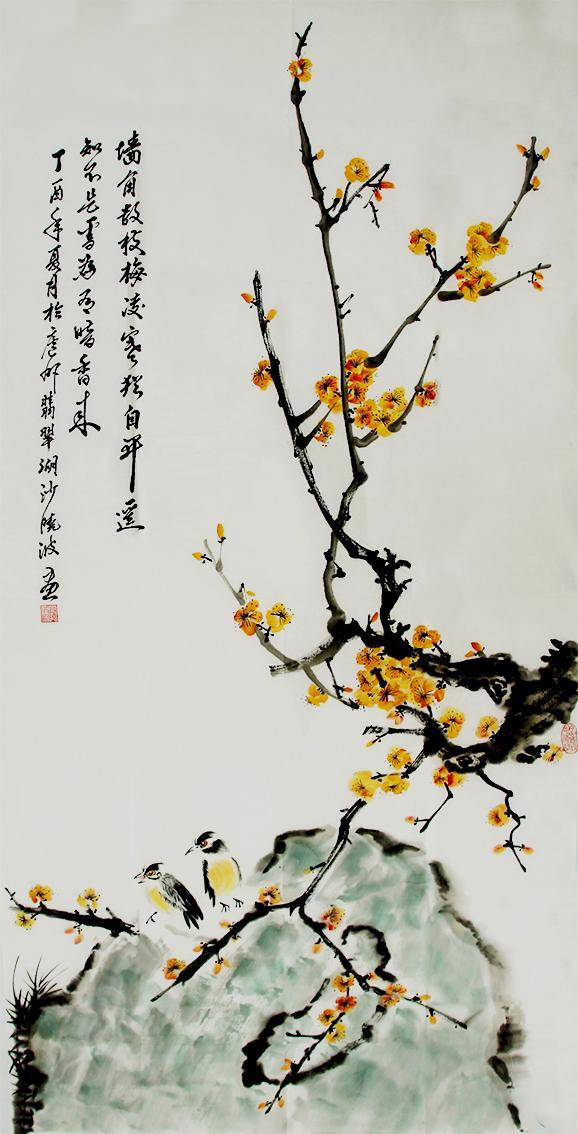 墙角数枝梅凌寒独自开遥
知不是雪为有暗香来
丁酉年夏月于庐州翡翠湖沙晓波画